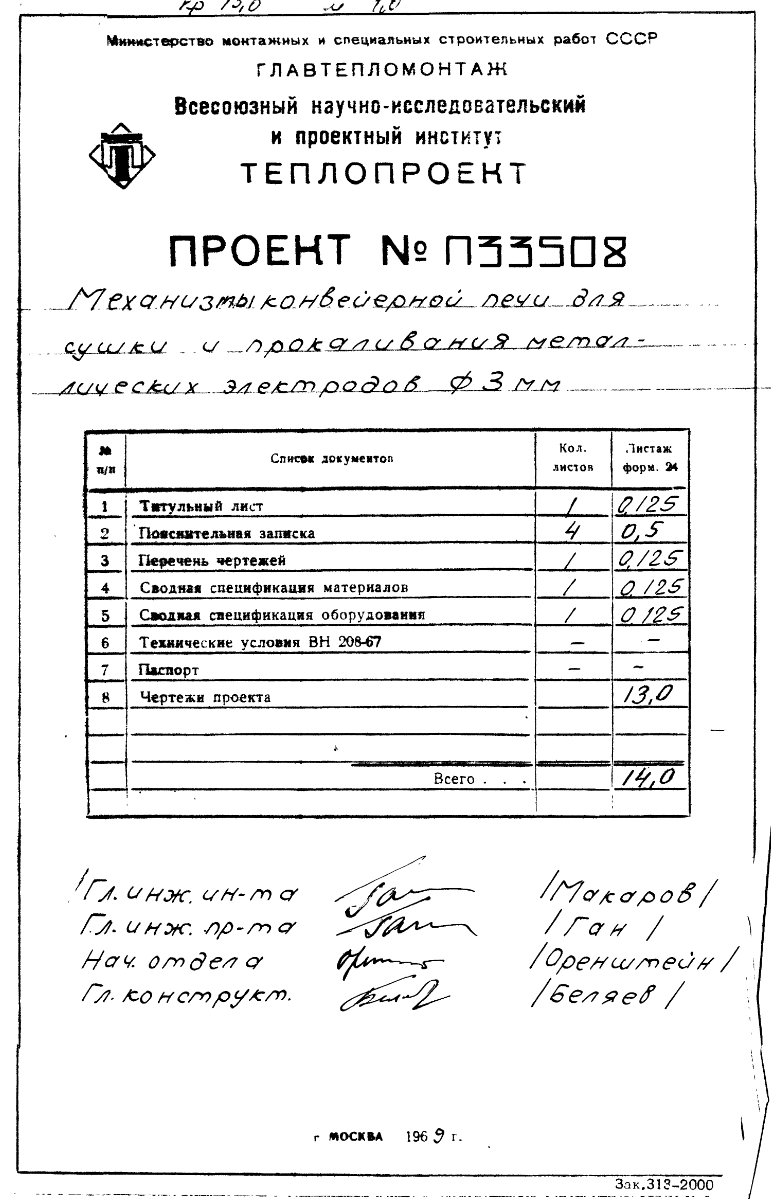 Министерство монтажных и специальных строительных работ СССР
ГЛАВТЕПЛОМОНТАЖ
Всесоюзный научно-исследовательский
и проектный институт
ТЕПЛОПРОЕКТ
ПРОЕКТ № П33508
Механизмы конвейерной печи для
сушки и прокаливания метал-
лических электродов ф 3 мм
№ п/п Список документов Кол. листов Листаж форм. 24
1 Титульный лист 1 0,125
2 Пояснительная записка 4 0,5
3 Перечень чертежей 1 0,125
4 Сводная спецификация материалов 1 0,125
5 Сводная спецификация оборудования 1 0,125
6 Технические условия ВН 208-67 — —
7 Паспорт — —
8 Чертежи проекта 13,0
Всего . . . 14,0
/Гл. инж. ин-та /Макаров/
Гл. инж. пр-та /Ган/
Нач. отдела /Оренштейн/
Гл. конструкт. /Беляев/
г МОСКВА 1969 г.
Зак.313-2000